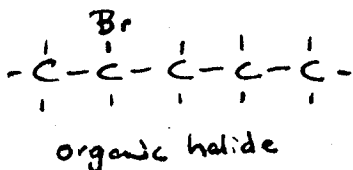 Br
- C - C - C - C - C -
organic halide